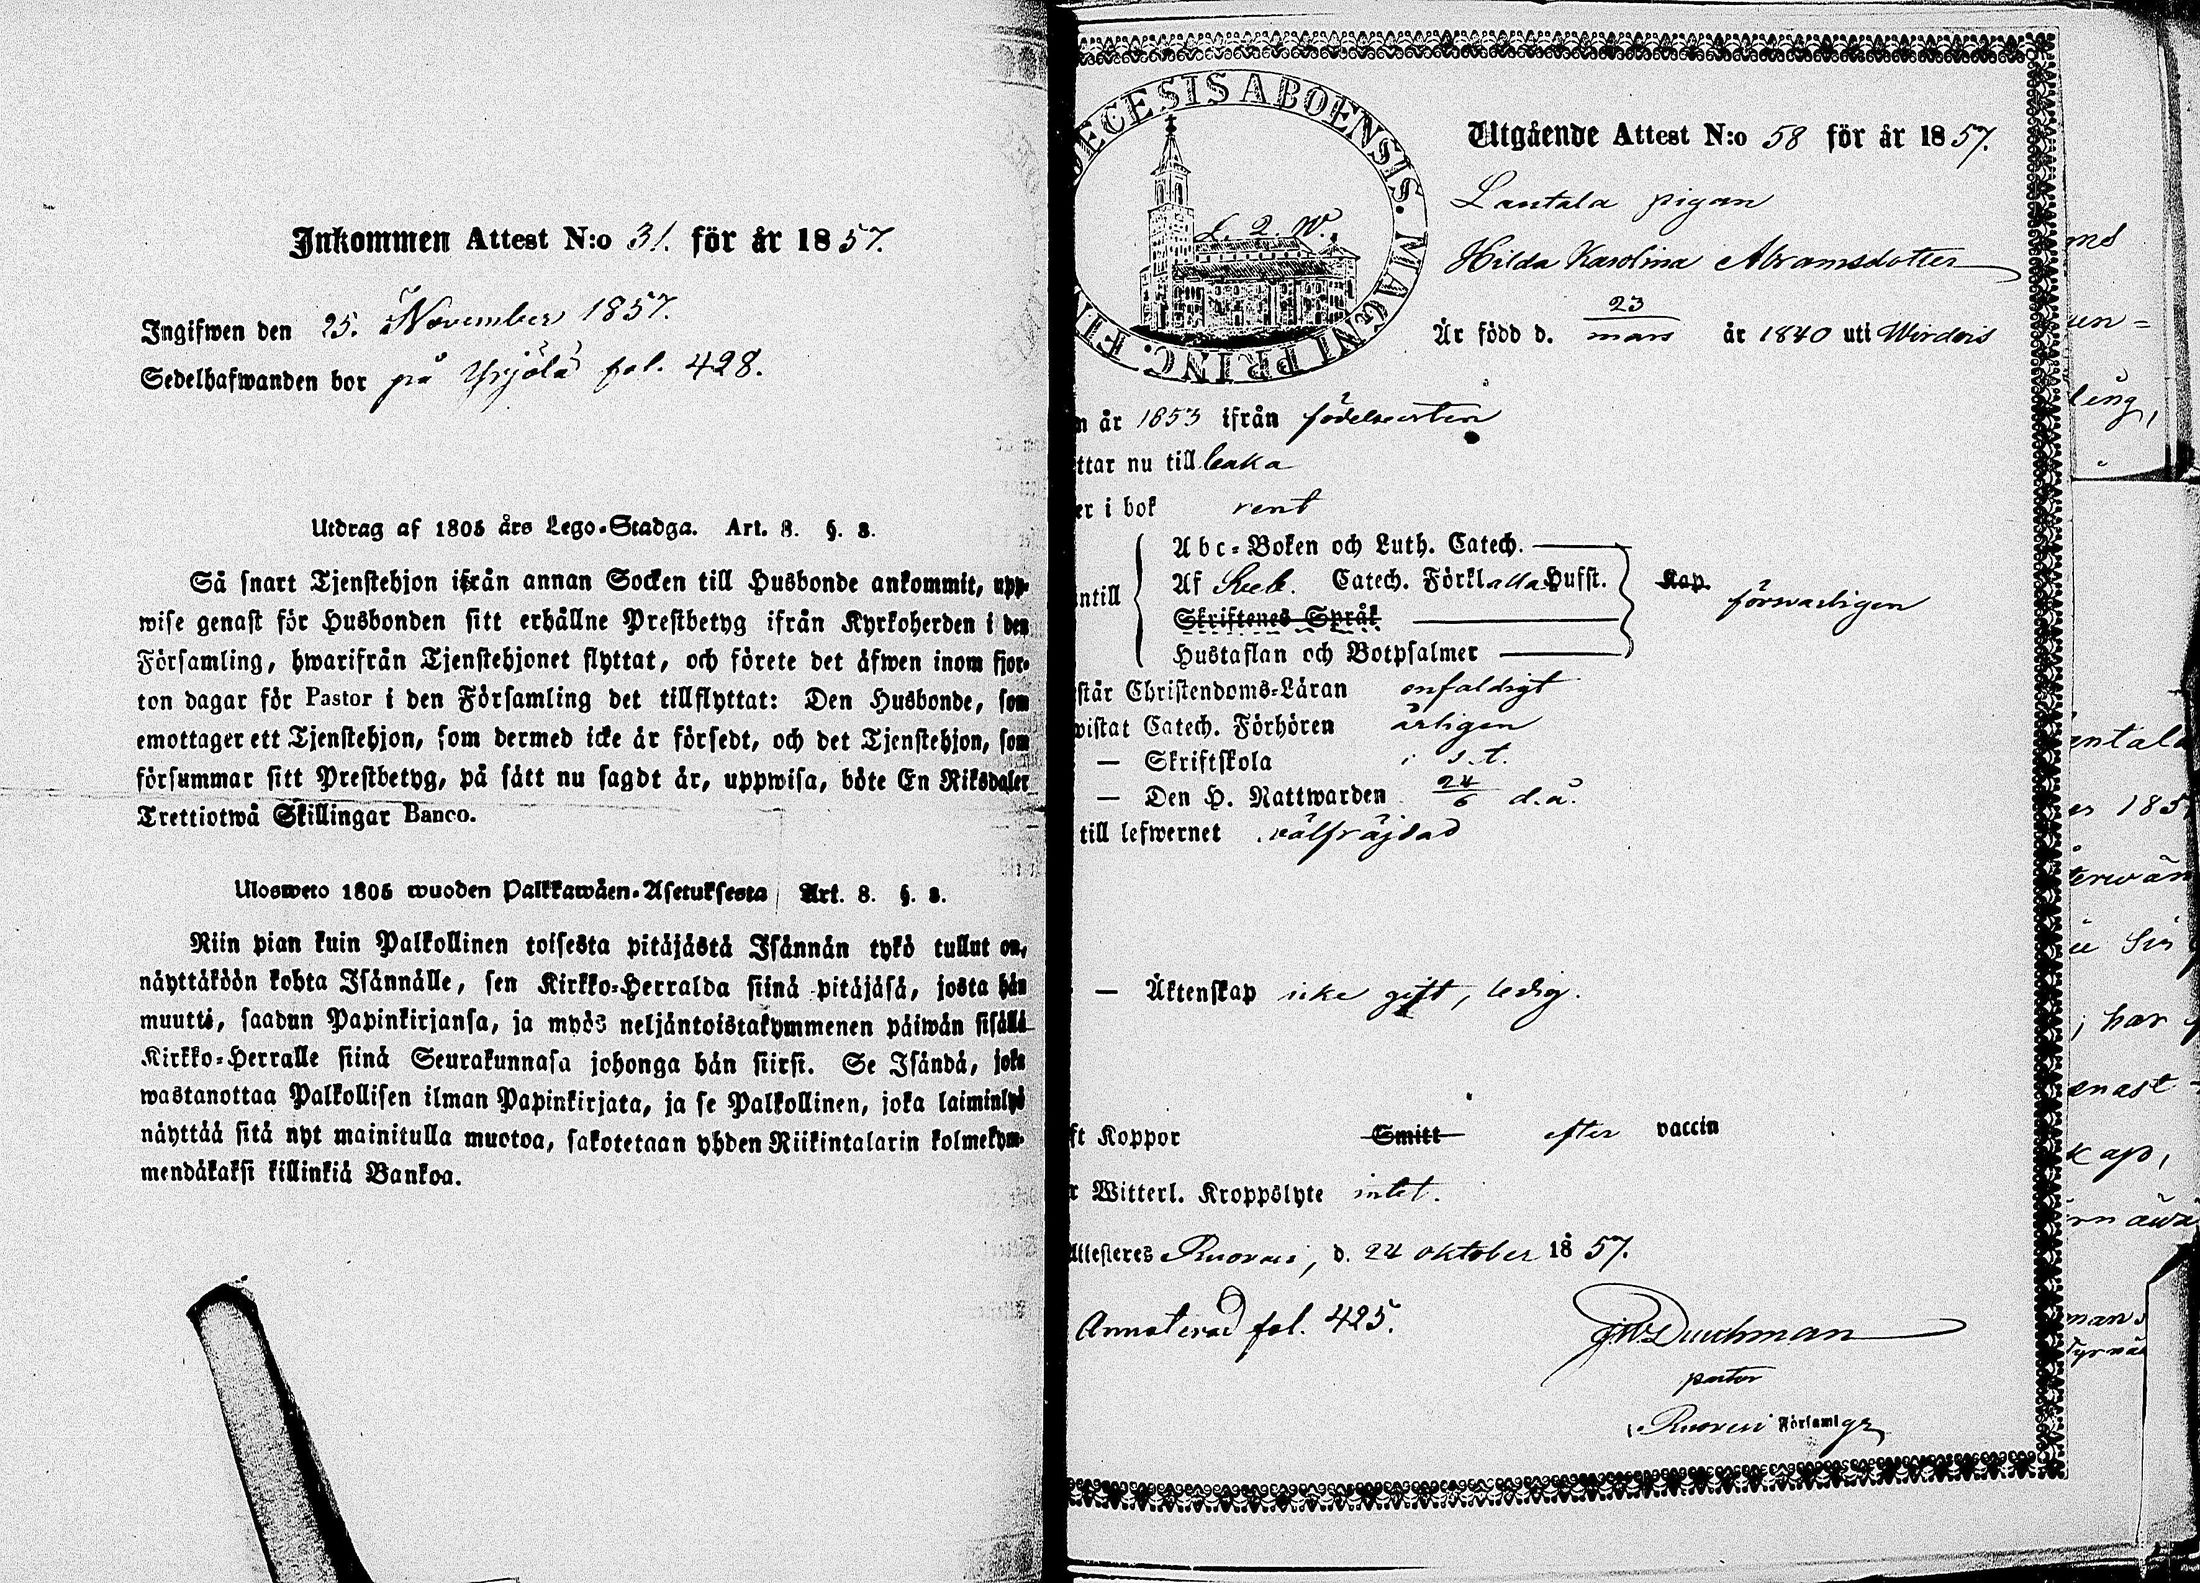 Inkommen Attest N:o 31. för år 1857.
Ingifwen den 25. November 1857.
Sedelhafwanden bor på Yrjölä fol. 428.
Utdrag af 1805 års Lego-Stadga. Art. 8. §. 3.
Så snart Tjenstehjon ifrån annan Socken till Husbonde ankommit, upp-
wise genast för Husbonden sitt erhållne Prestbetyg ifrån Kyrkoherden i den
Församling, hwarifrån Tjenstehjonet flyttat, och förete det äfwen inom fjor-
ton dagar för Pastor i den Församling det tillflyttat: Den Husbonde, som
emottager ett Tjenstehjon, som dermed icke är försedt, och det Tjenstehjon, som
försummar sitt Prestbetyg, på sätt nu sagdt är, uppwisa, böte En Riksdaler
Trettiotwå Skillingar Banco.
Ulosweto 1805 wuoden Palkkawäen-Asetuksesta Art. 8. §. 3.
Niin pian kuin Palkollinen toisesta pitäjästä Isännän tykö tullut on,
näyttäköön kohta Isännälle, sen Kirkko-Herralda siinä pitäjäsä, josta hän
muutti, saadun Papinkirjansa, ja myös neljäntoistakymmenen päiwän sisällä
Kirkko-Herralle siinä Seurakunnasa johonga hän siirsi. Se Isändä, joka
wastanottaa Palkollisen ilman Papinkirjata, ja se Palkollinen, joka laiminlyö
näyttää sitä nyt mainitulla muotoa, sakotetaan yhden Riikintalarin kolmekym-
mendäkaksi killinkiä Bankoa.
DIOECESIS ABOENSIS. MAGNI PRINC. FIN
L. 2. W.
Utgående Attest N:o 58 för år 1857.
Lantala pigan
Hilda Karolina Abramsdotter
Är född d. 23/mars år 1840 uti Wirdois
n år 1853 ifrån födelseorten
ttar nu tillbaka
er i bok rent
ntill
Abc-Boken och Luth. Catech.
Af Sveb. Catech. Förkl alla Husst. Kap. försvarligen
Skriftenes Språk
Hustaflan och Botpsalmer
står Christendoms-Läran enfaldigt
wistat Catech. Förhören årligen
— Skriftskola i s.t.
— Den H. Nattwarden 24/6 d.å.
till lefwernet välfräjdad
— Äktenskap icke gift, ledig.
ft Koppor Smitt efter vaccin
r Witterl. Kroppslyte intet.
Attesteres Ruovesi, d. 24 oktober 1857.
Annoterad fol. 425.
pastor
Ruovesi Församlgr